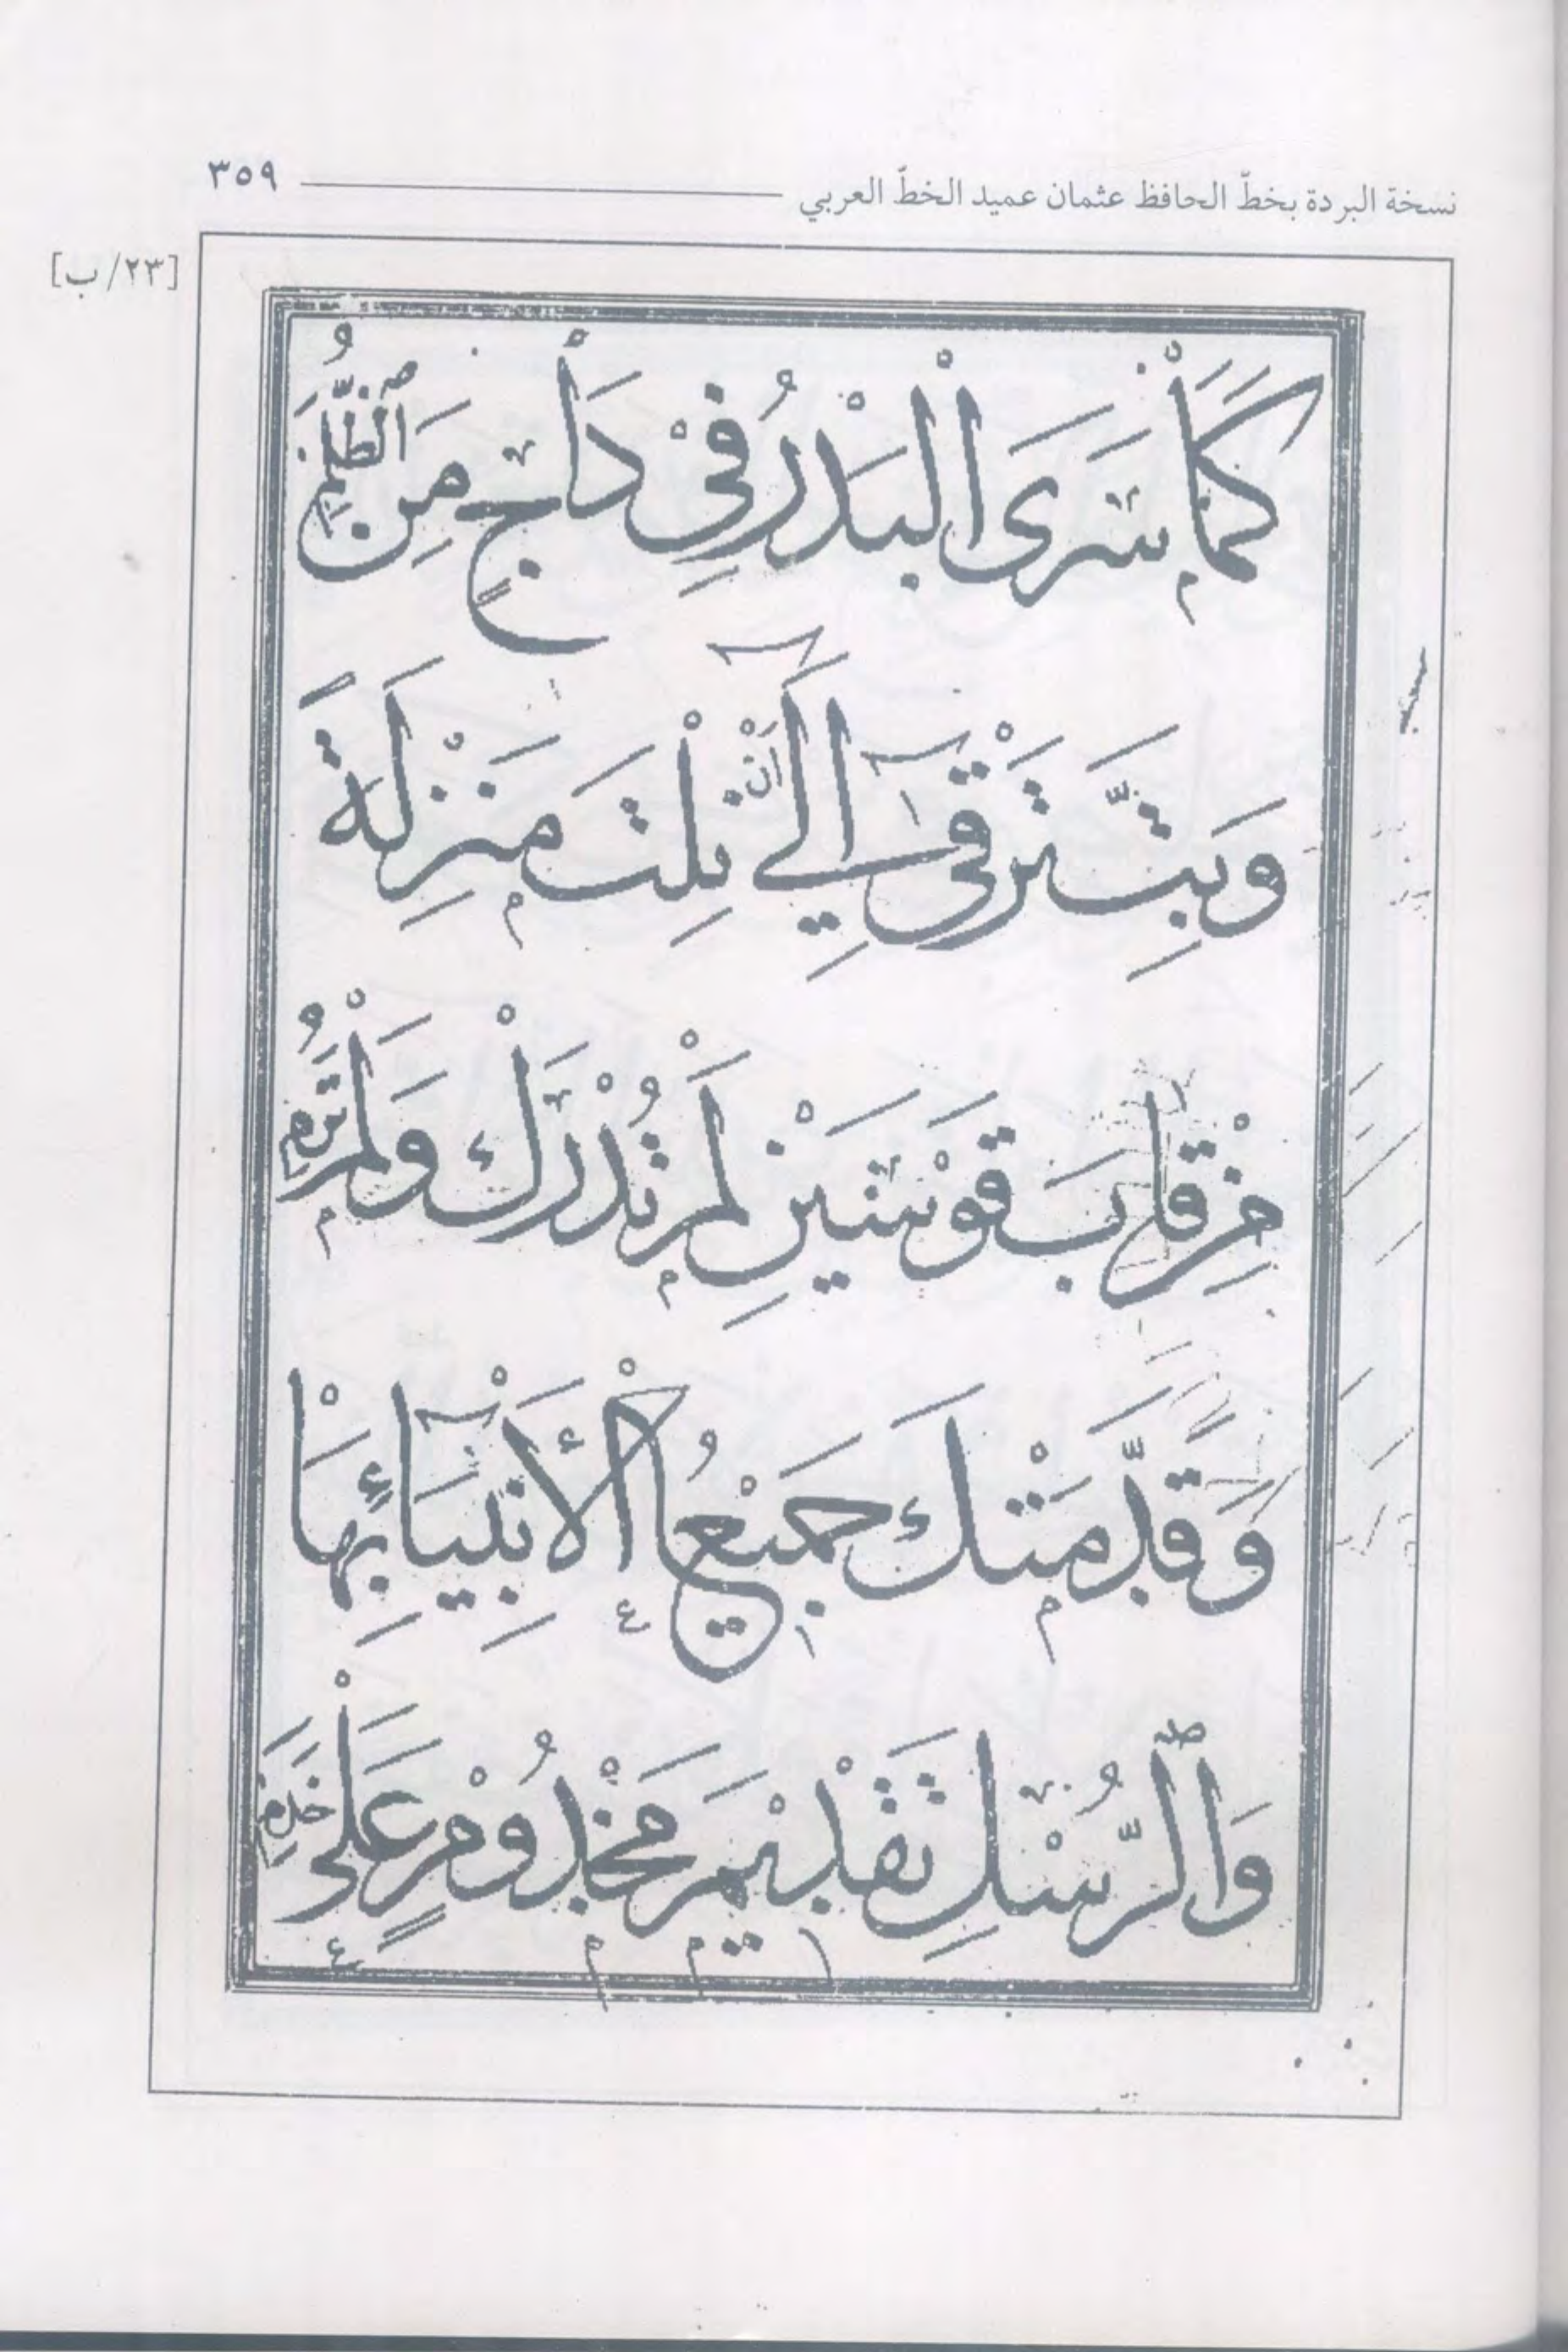 نسخة البردة بخطّ الحافظ عثمان عميد الخطّ العربي ٣٥٩
[٢٣/ب]
كَمَا سَرَى الْبَدْرُ فِيْ دَاْجٍ مِنَ ٱلظُّلَمِ
وَبِتَّ تَرْقٰٓى اِلٰٓي اَنْ نِلْتَ مَنْزِلَةً
مِنْ قَابَ قَوْسَيْنِ لَمْ تُدْرَكْ وَلَمْ تُرَمِ
وَقَدَّمَتْكَ جَمِيْعُ الْأَنْبِيَآءِ بِهَاْ
وَٱلرُّسْلِ تَقْدِيْمَ مَخْدُوْمٍ عَلَىْ خَدَمِ